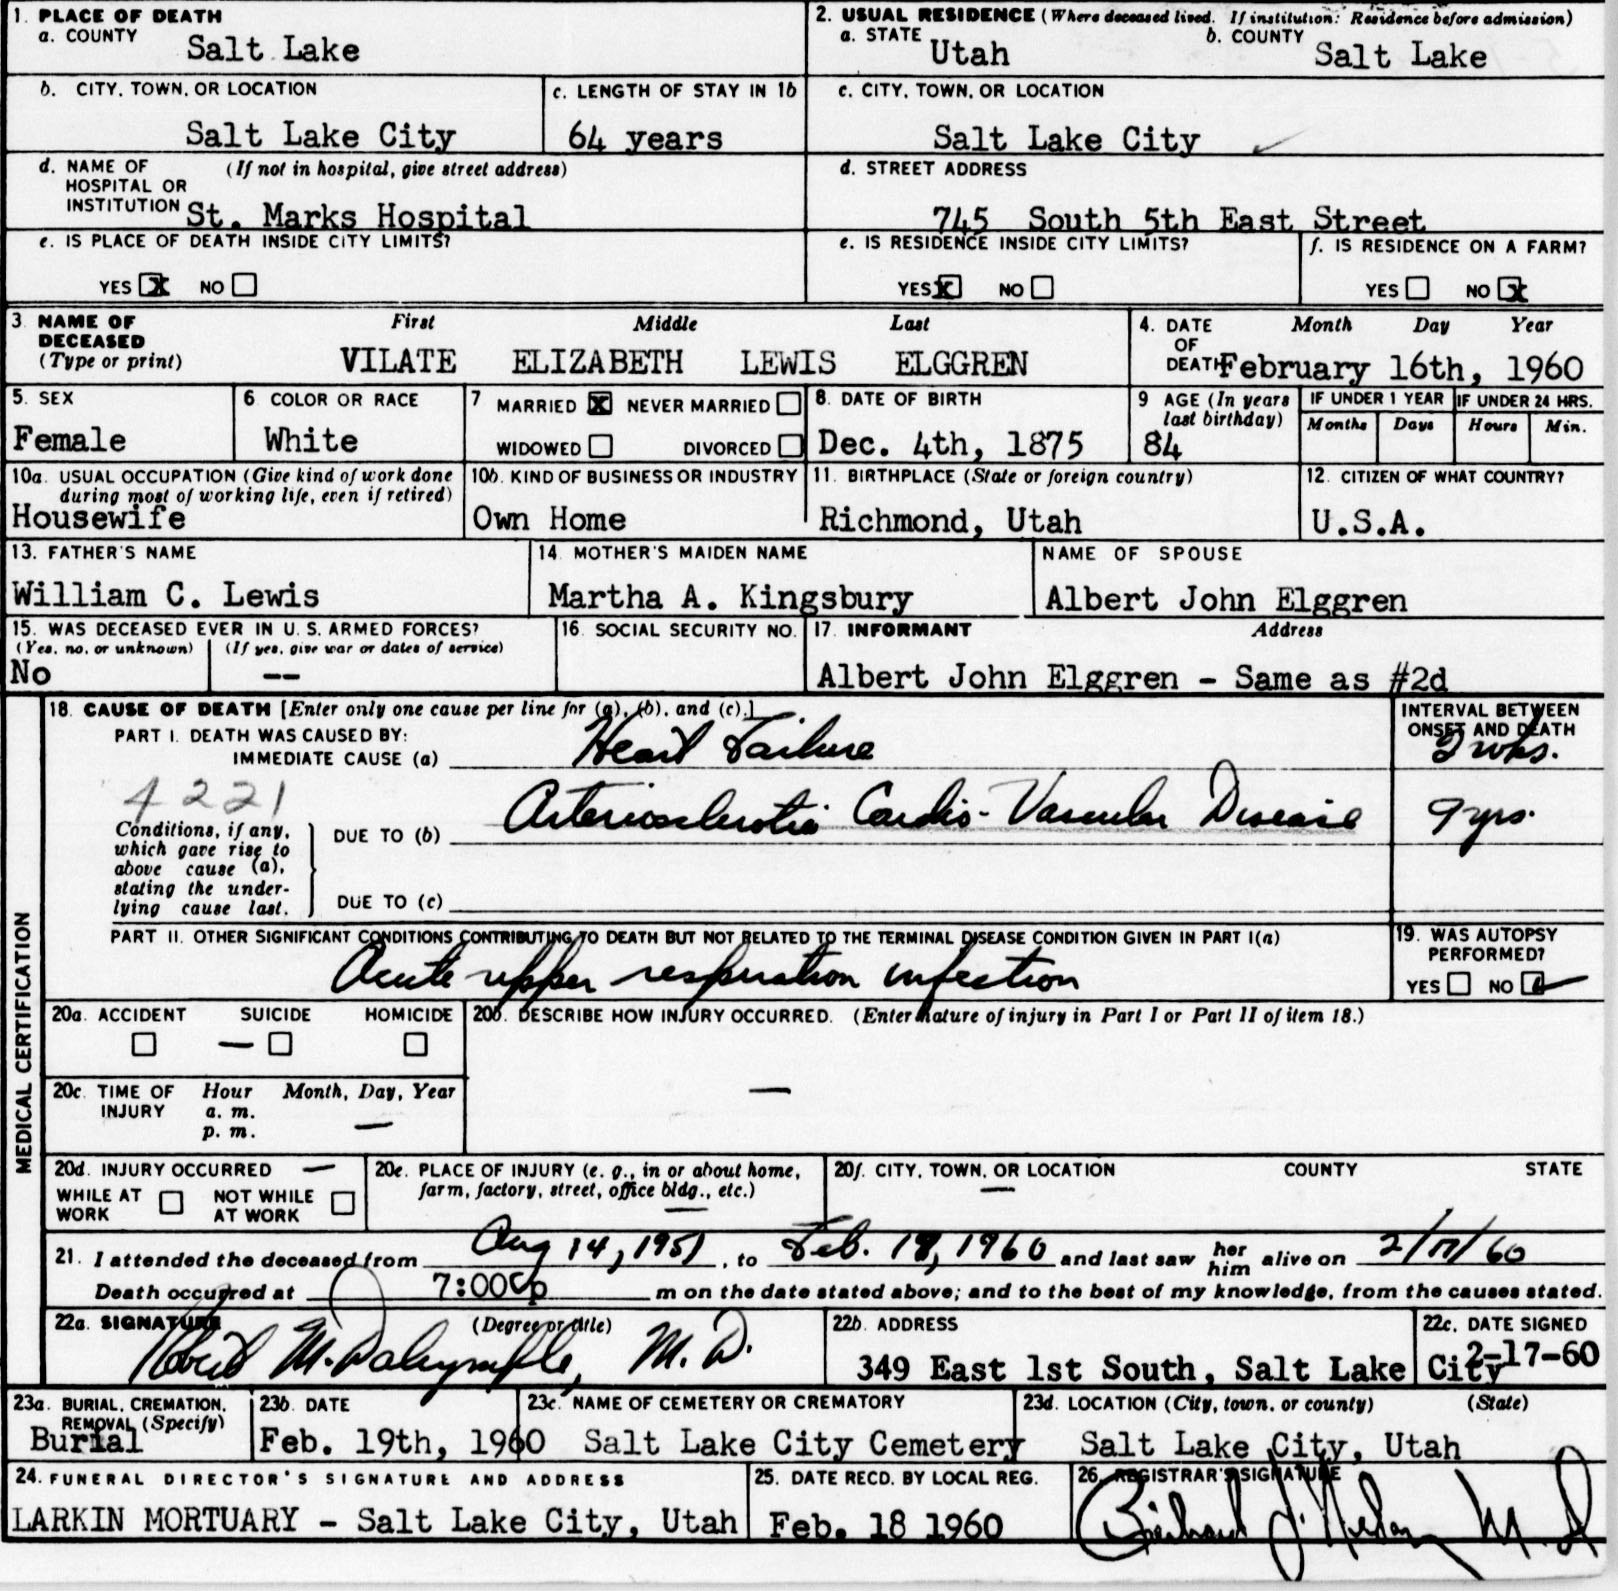 1. PLACE OF DEATH
a. COUNTY Salt Lake
2. USUAL RESIDENCE (Where deceased lived. If institution: Residence before admission)
a. STATE Utah b. COUNTY Salt Lake
b. CITY, TOWN, OR LOCATION Salt Lake City
c. LENGTH OF STAY IN 1b 64 years
c. CITY, TOWN, OR LOCATION Salt Lake City
d. NAME OF HOSPITAL OR INSTITUTION (If not in hospital, give street address) St. Marks Hospital
d. STREET ADDRESS 745 South 5th East Street
e. IS PLACE OF DEATH INSIDE CITY LIMITS?
YES X NO
e. IS RESIDENCE INSIDE CITY LIMITS?
YES X NO
f. IS RESIDENCE ON A FARM?
YES NO X
3. NAME OF DECEASED (Type or print) First Middle Last
VILATE ELIZABETH LEWIS ELGGREN
4. DATE OF DEATH Month Day Year
February 16th, 1960
5. SEX Female
6. COLOR OR RACE White
7. MARRIED X NEVER MARRIED
WIDOWED DIVORCED
8. DATE OF BIRTH Dec. 4th, 1875
9. AGE (In years last birthday) 84
IF UNDER 1 YEAR Months Days
IF UNDER 24 HRS. Hours Min.
10a. USUAL OCCUPATION (Give kind of work done during most of working life, even if retired)
Housewife
10b. KIND OF BUSINESS OR INDUSTRY
Own Home
11. BIRTHPLACE (State or foreign country)
Richmond, Utah
12. CITIZEN OF WHAT COUNTRY?
U.S.A.
13. FATHER'S NAME
William C. Lewis
14. MOTHER'S MAIDEN NAME
Martha A. Kingsbury
NAME OF SPOUSE
Albert John Elggren
15. WAS DECEASED EVER IN U.S. ARMED FORCES?
(Yes, no, or unknown) (If yes, give war or dates of service)
No --
16. SOCIAL SECURITY NO.
17. INFORMANT Address
Albert John Elggren - Same as #2d
MEDICAL CERTIFICATION
18. CAUSE OF DEATH [Enter only one cause per line for (a), (b), and (c).]
INTERVAL BETWEEN ONSET AND DEATH
PART I. DEATH WAS CAUSED BY:
IMMEDIATE CAUSE (a) Heart Failure 2 wks.
4221
Conditions, if any, which gave rise to above cause (a), stating the underlying cause last.
DUE TO (b) Arteriosclerotic Cardio-Vascular Disease 9 yrs.
DUE TO (c)
PART II. OTHER SIGNIFICANT CONDITIONS CONTRIBUTING TO DEATH BUT NOT RELATED TO THE TERMINAL DISEASE CONDITION GIVEN IN PART I(a)
Acute upper respiration infection
19. WAS AUTOPSY PERFORMED?
YES NO ✓
20a. ACCIDENT SUICIDE HOMICIDE
—
20b. DESCRIBE HOW INJURY OCCURRED. (Enter nature of injury in Part I or Part II of item 18.)
—
20c. TIME OF INJURY Hour Month, Day, Year
a. m.
p. m. —
20d. INJURY OCCURRED —
WHILE AT WORK NOT WHILE AT WORK
20e. PLACE OF INJURY (e. g., in or about home, farm, factory, street, office bldg., etc.)
—
20f. CITY, TOWN, OR LOCATION COUNTY STATE
—
21. I attended the deceased from Aug 14, 1951, to Feb. 18, 1960 and last saw her him alive on 2/17/60
Death occurred at 7:00 p m on the date stated above; and to the best of my knowledge, from the causes stated.
22a. SIGNATURE (Degree or title)
Robert M. Dalrymple, M.D.
22b. ADDRESS
349 East 1st South, Salt Lake City
22c. DATE SIGNED
2-17-60
23a. BURIAL, CREMATION, REMOVAL (Specify)
Burial
23b. DATE
Feb. 19th, 1960
23c. NAME OF CEMETERY OR CREMATORY
Salt Lake City Cemetery
23d. LOCATION (City, town, or county) (State)
Salt Lake City, Utah
24. FUNERAL DIRECTOR'S SIGNATURE AND ADDRESS
LARKIN MORTUARY - Salt Lake City, Utah
25. DATE RECD. BY LOCAL REG.
Feb. 18 1960
26. REGISTRAR'S SIGNATURE
M.D.